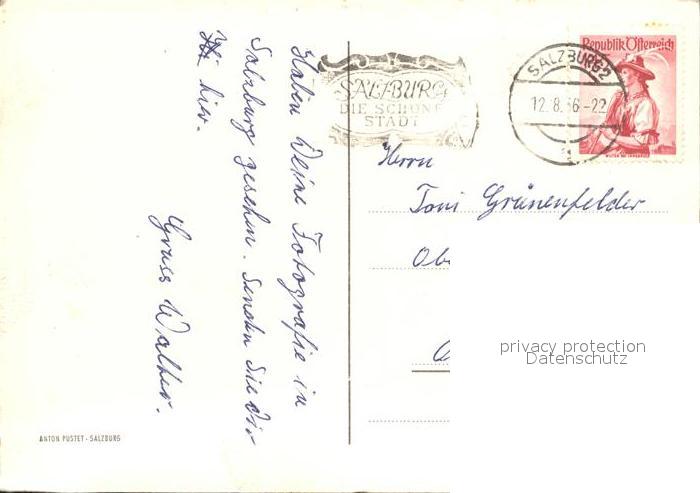 Haben Deine Fotografie in
Salzburg gesehen. Senden Sie Dir
hier.
Gruss Walter.
SALZBURG
DIE SCHÖNE
STADT
SALZBURG 2
12.8.56-22
Republik Österreich
Herrn
Toni Grünenfelder
Ob
privacy protection
Datenschutz
ANTON PUSTET - SALZBURG